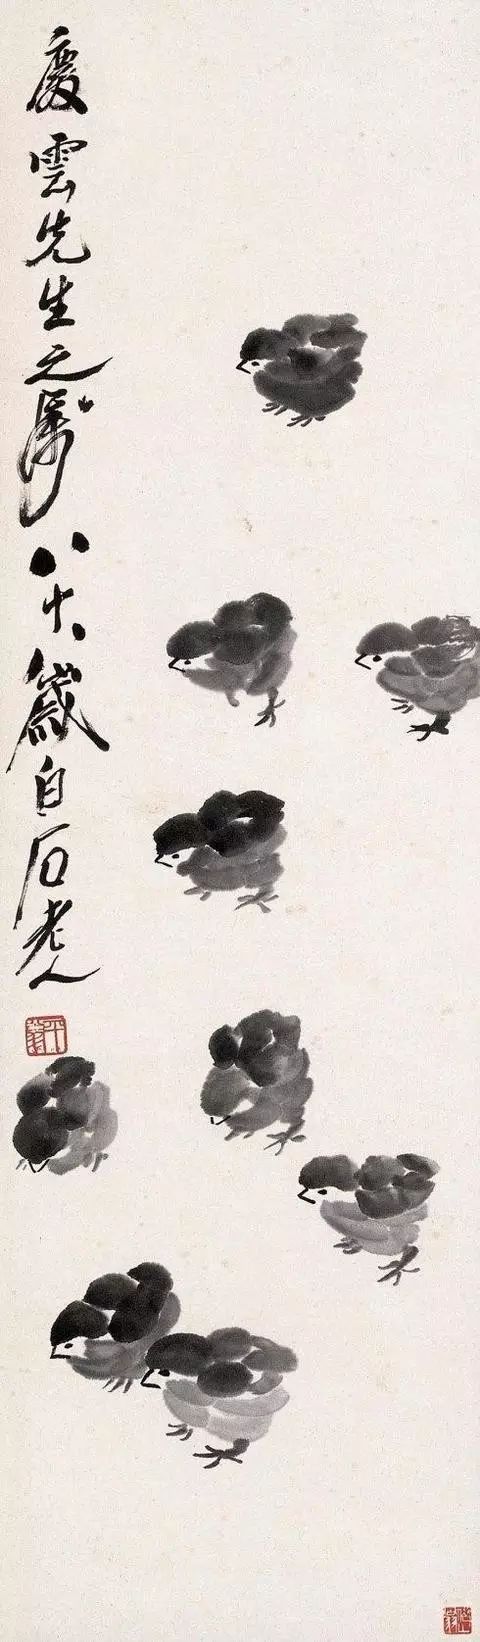 慶雲先生之屬八十歲白石老人
平翁